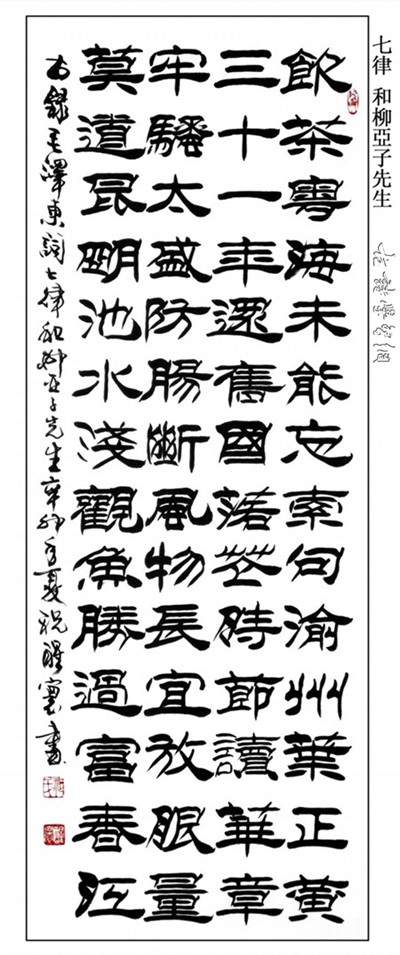 七律 和柳亞子先生
飲茶粵海未能忘索句渝州葉正黃
三十一年還舊國落花時節讀華章
牢騷太盛防腸斷風物長宜放眼量
莫道昆明池水淺觀魚勝過富春江
錄毛澤東詞七律和柳亞子先生辛卯年夏祝醒寰書